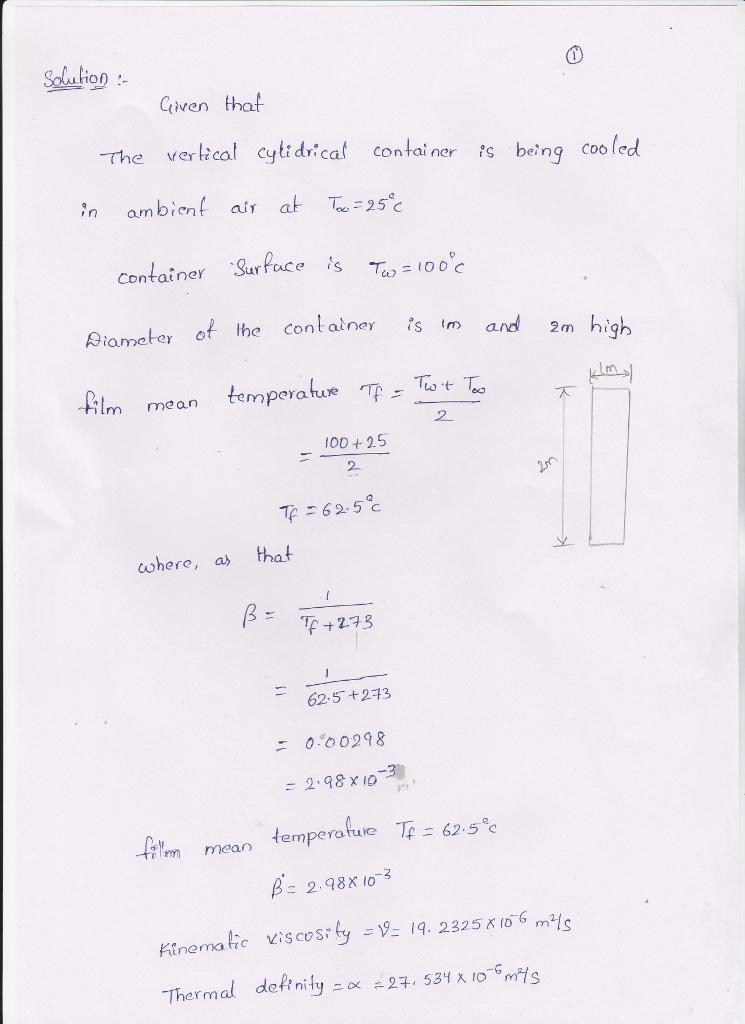 ①
Solution :-
Given that
The vertical cylidrical container is being cooled
in ambient air at T∞ = 25°c
container Surface is Tw = 100°c
Diameter of the container is 1m and 2m high
film mean temperature Tf = Tw + T∞ / 2
1m
= 100 + 25 / 2
2m
Tf = 62.5°c
where, as that
β = 1 / Tf + 273
= 1 / 62.5 + 273
= 0.00298
= 2.98 × 10⁻³
film mean temperature Tf = 62.5°c
β = 2.98 × 10⁻³
Kinematic viscosity = ϑ = 19.2325 × 10⁻⁶ m²/s
Thermal definity = α = 27.534 × 10⁻⁶ m²/s